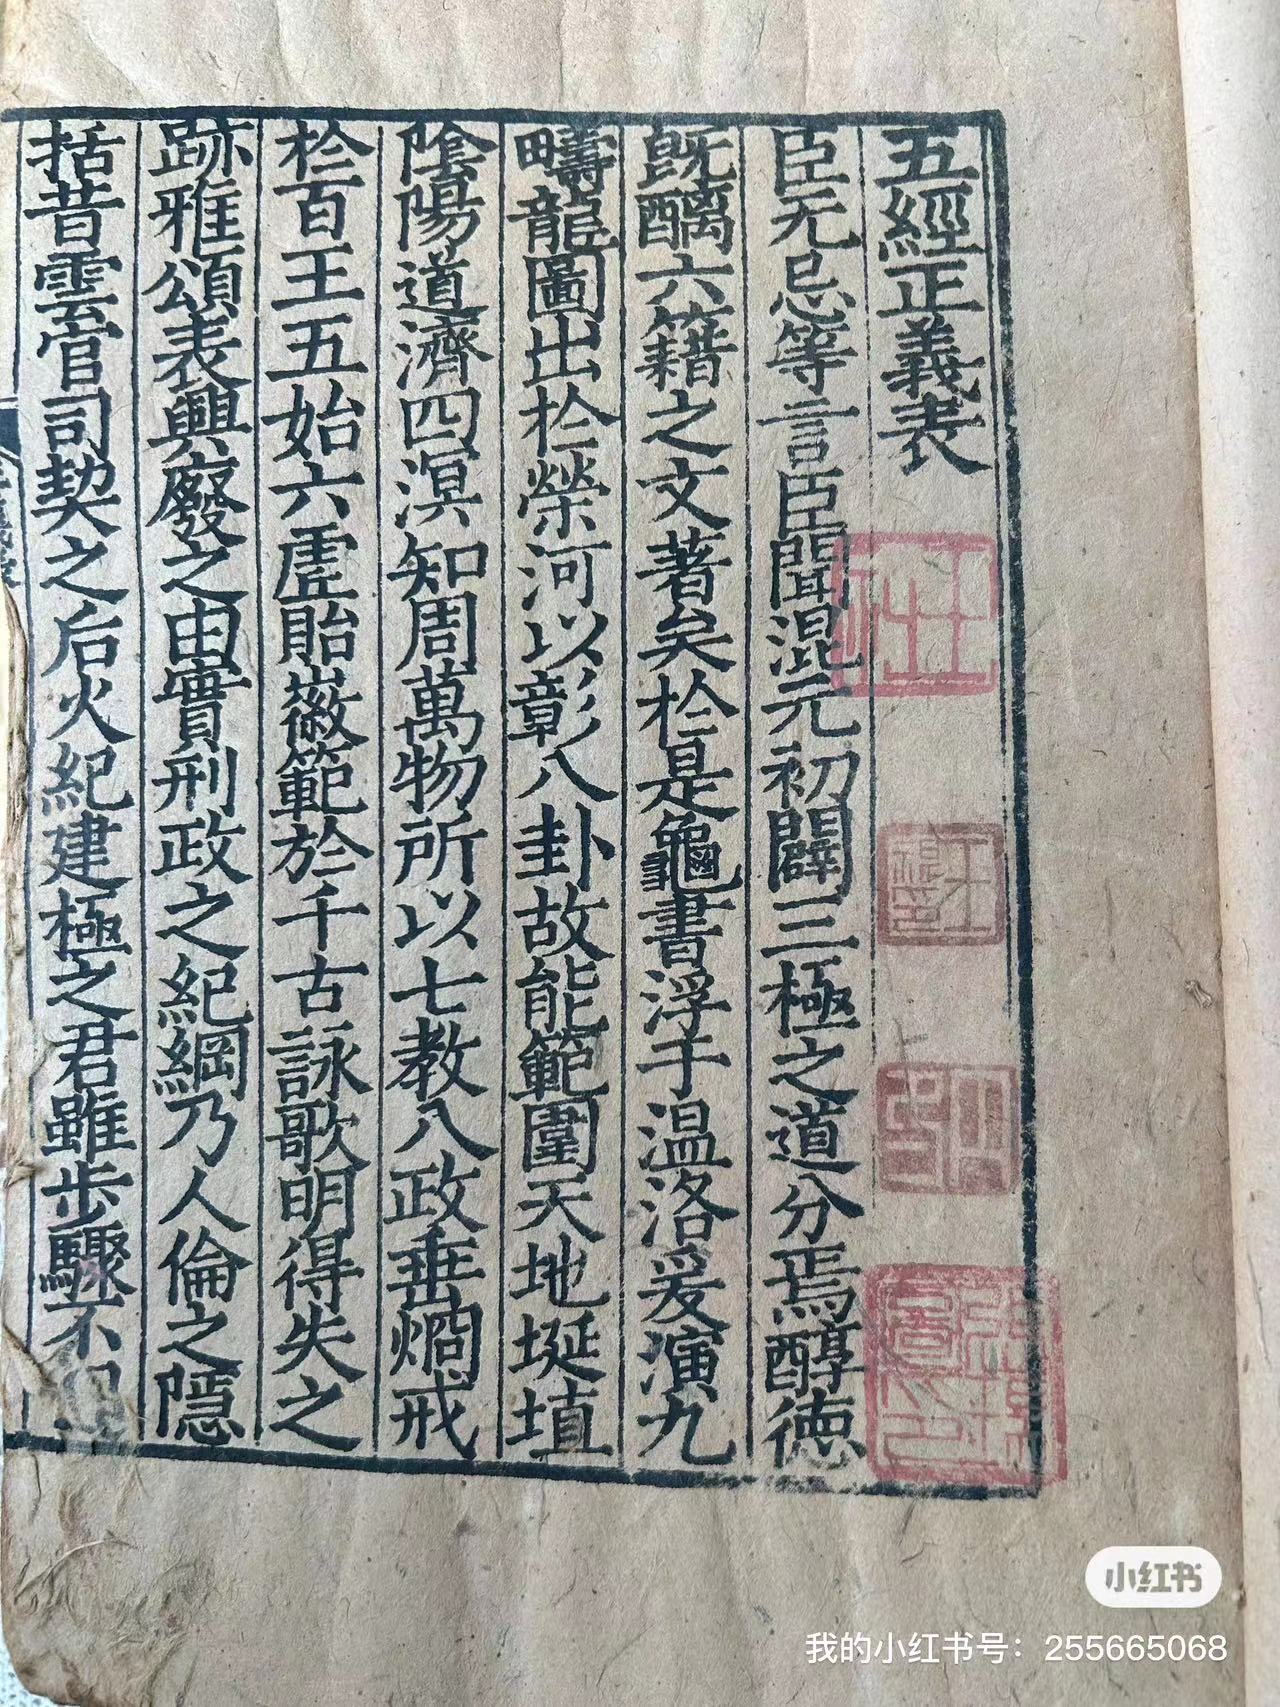 五經正義表
臣无忌等言臣聞混元初闢三極之道分焉醇德
既醨六籍之文著矣於是龜書浮于温洛爰演九
疇龍圖出於榮河以彰八卦故能範圍天地埏埴
陰陽道濟四溟知周萬物所以七教八政垂烱戒
於百王五始六虛貽徽範於千古詠歌明得失之
跡雅頌表興廢之由實刑政之紀綱乃人倫之隱
括昔雲官司契之后火紀建極之君雖步驟不
小红书
我的小红书号：255665068